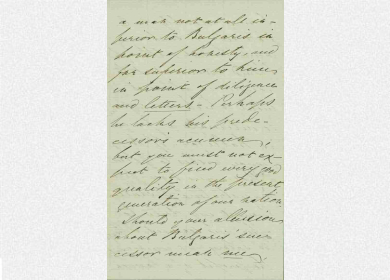 a man not at all in-
ferior to Bulgaris in
point of honesty, and
far superior to him,
in point of diligence
and letters - Perhaps
he lacks his prede-
cessor's acumen,
but you must not ex-
pect to find every good
quality in the present
generation of our nation
Should your allusion
about Bulgaris suc-
cessor mean me,